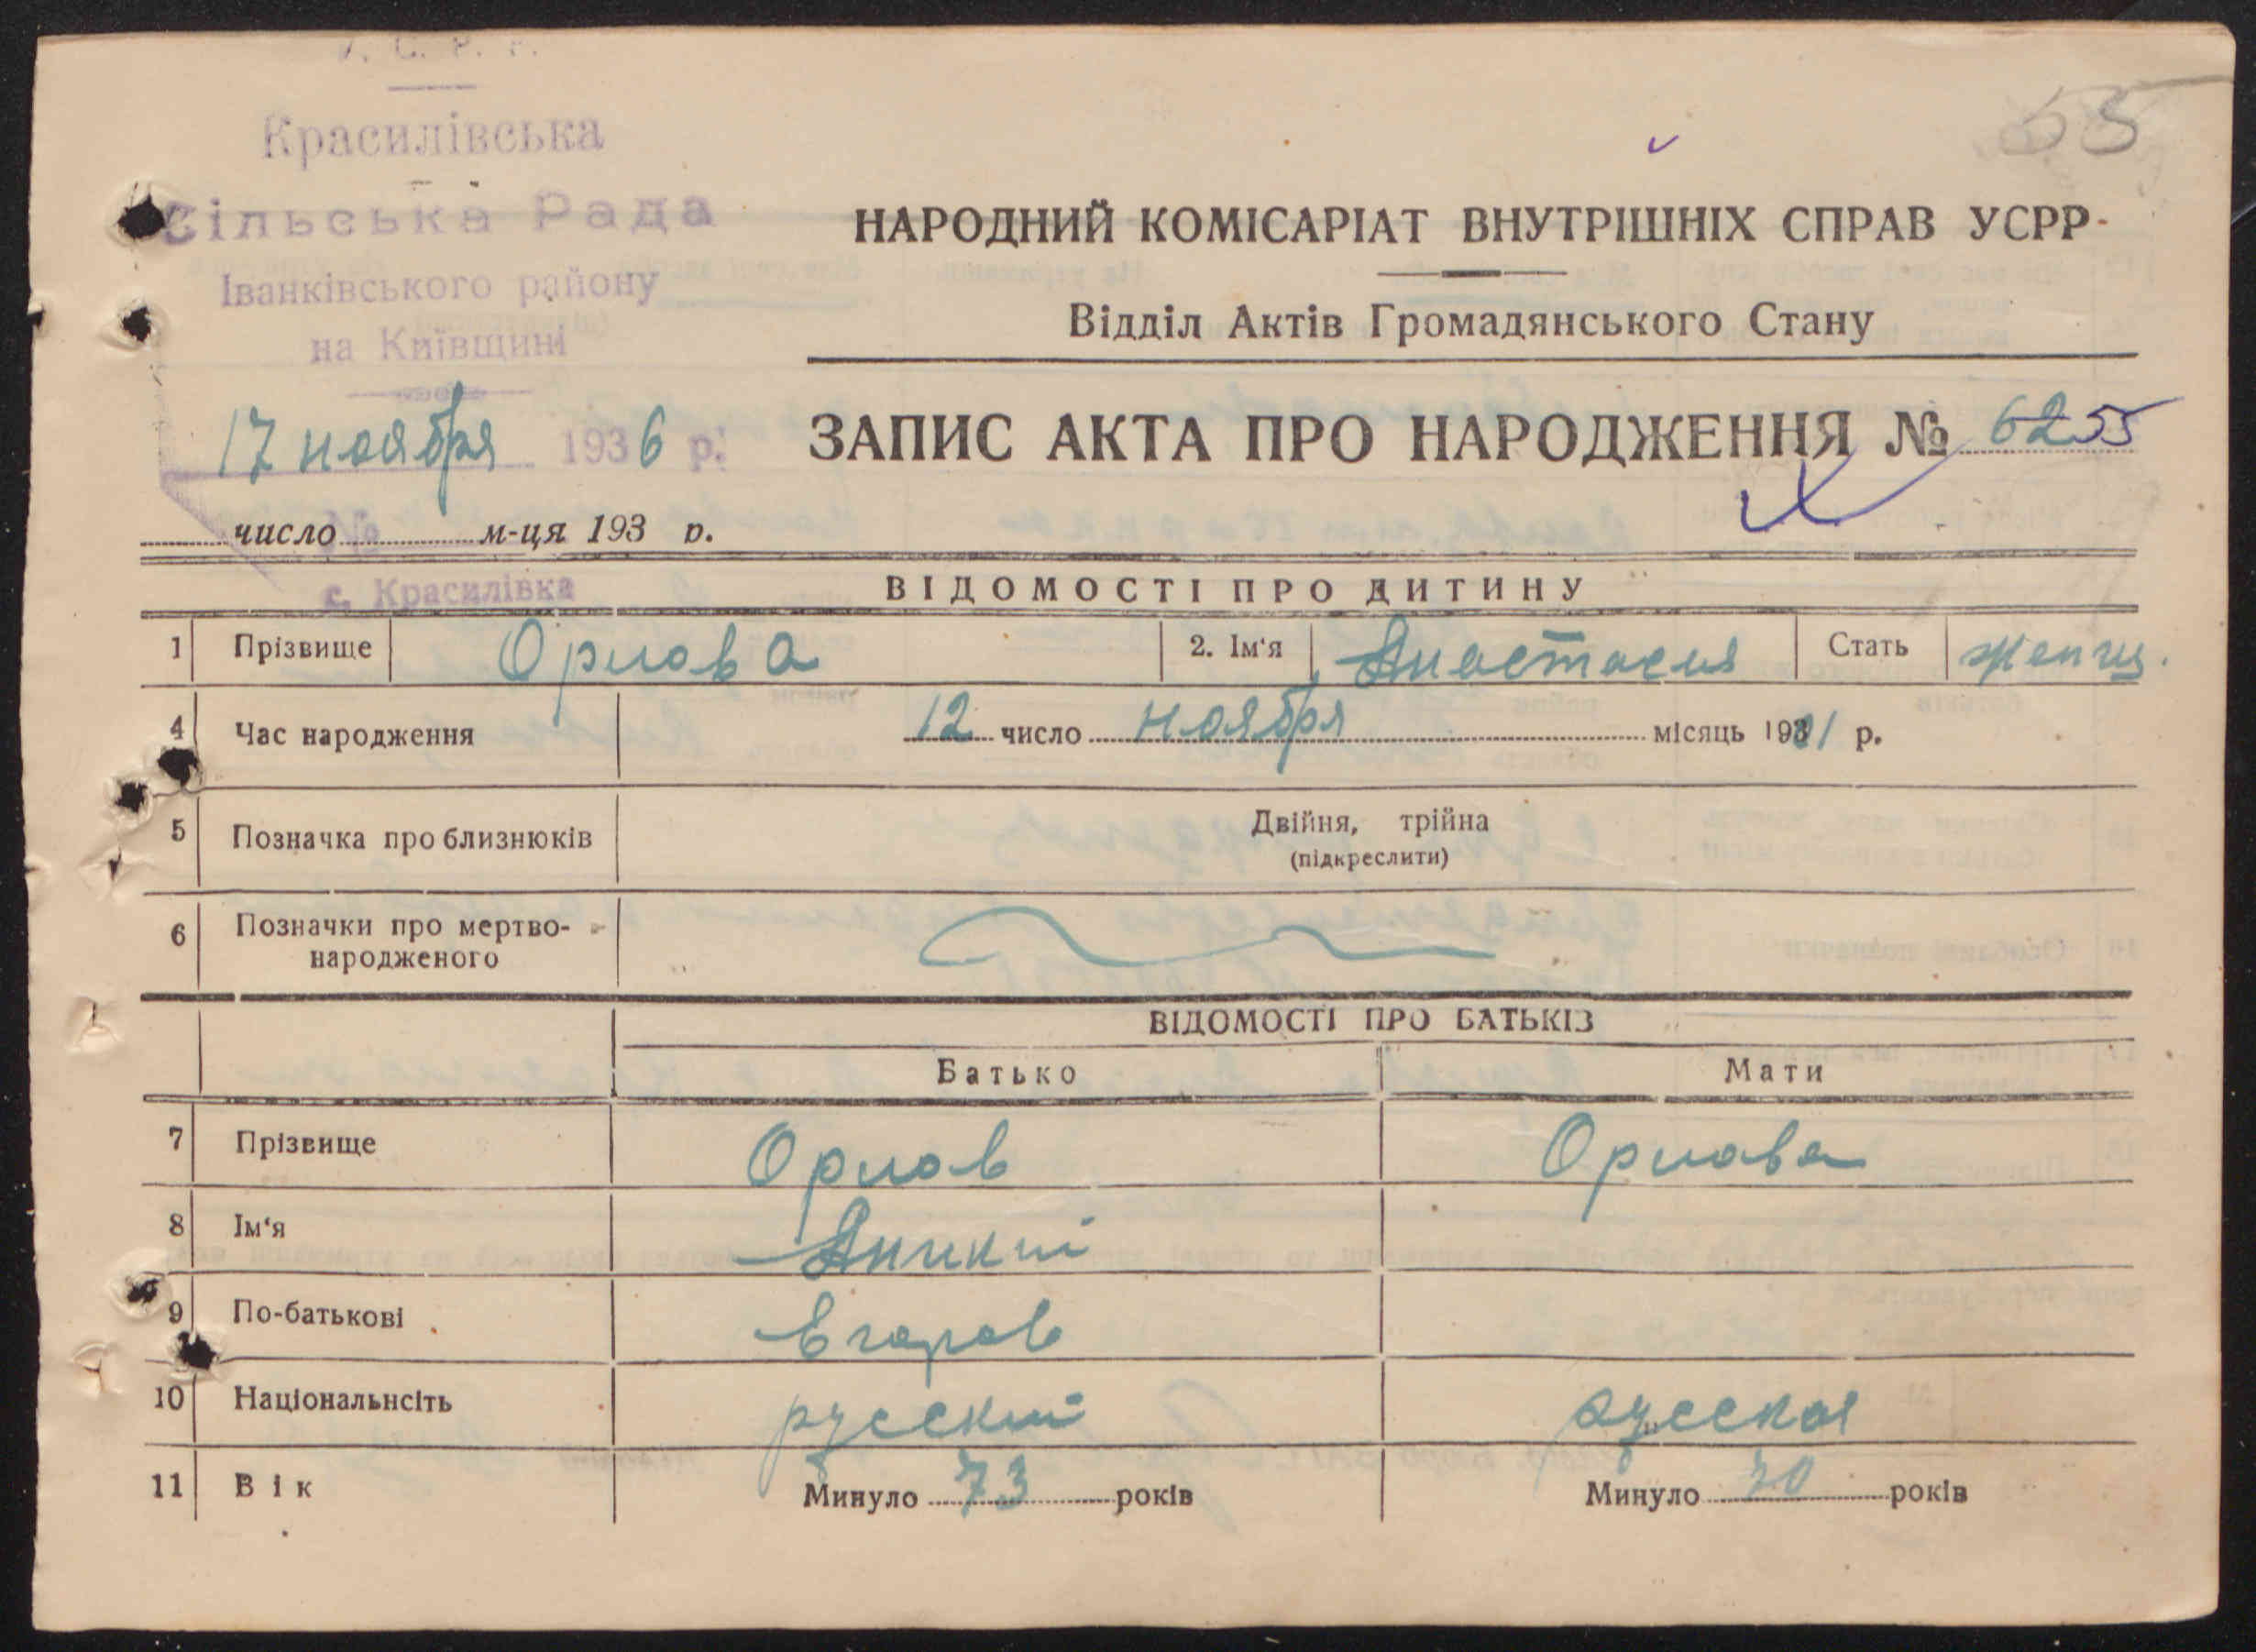 У. С. Р. Р.
55
Красилівська
Сільська Рада
Іванківського району
на Київщині
НАРОДНИЙ КОМІСАРІАТ ВНУТРІШНІХ СПРАВ УСРР
Відділ Актів Громадянського Стану
17 ноября 1936 р.
ЗАПИС АКТА ПРО НАРОДЖЕННЯ № 6255
число м-ця 193 р.
№
с. Красилівка
ВІДОМОСТІ ПРО ДИТИНУ
1 Прізвище Орлова 2. Ім'я Анастасия Стать женщ.
4 Час народження 12 число ноября місяць 1901 р.
5 Позначка про близнюків Двійня, трійна
(підкреслити)
6 Позначки про мертво-
народженого
ВІДОМОСТІ ПРО БАТЬКІВ
Батько Мати
7 Прізвище Орлов Орлова
8 Ім'я Аникий
9 По-батькові Егоров
10 Національнсіть русский русская
11 Вік Минуло 73 років Минуло 70 років